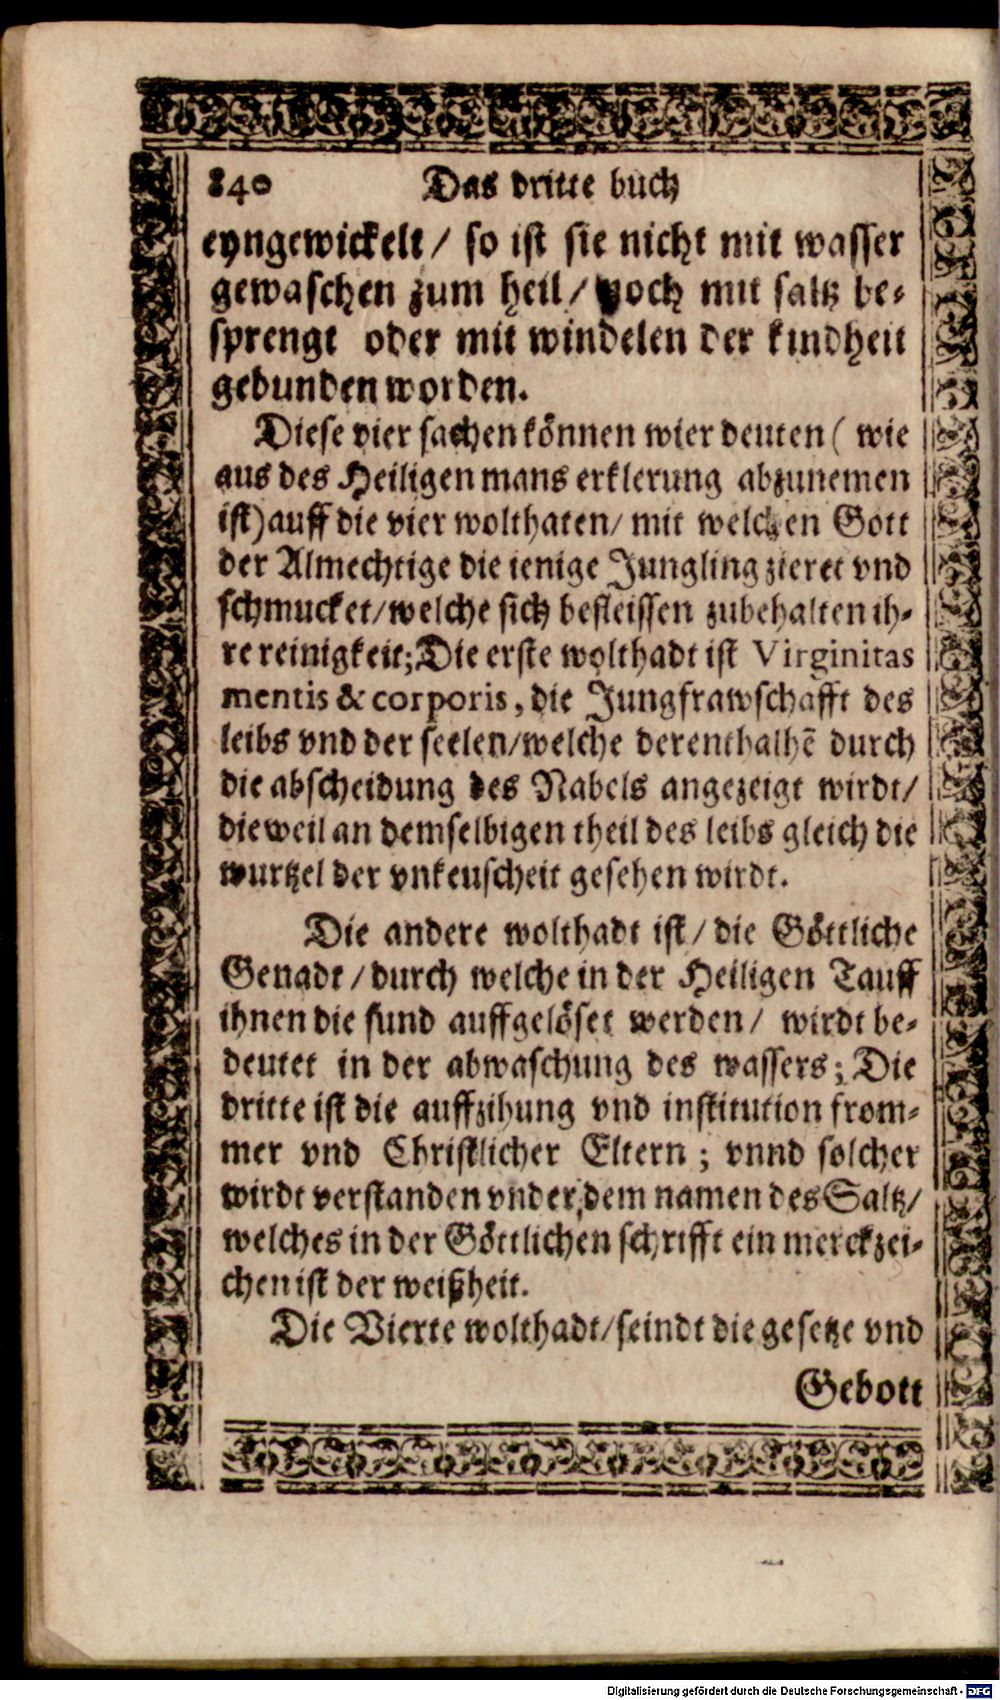 840 Das dritte buch
eyngewickelt/ so ist sie nicht mit wasser
gewaschen zum heil/ noch mit saltz be-
sprengt oder mit windelen der kindheit
gebunden worden.
Diese vier sachen können wier deuten ( wie
aus des Heiligen mans erklerung abzunemen
ist) auff die vier wolthaten/ mit welchen Gott
der Almechtige die ienige Jungling zieret vnd
schmucket/welche sich befleissen zubehalten ih-
re reinigkeit; Die erste wolthadt ist Virginitas
mentis & corporis, die Jungfrawschafft des
leibs vnd der seelen/welche derenthalhē durch
die abscheidung des Nabels angezeigt wirdt/
dieweil an demselbigen theil des leibs gleich die
wurtzel der vnkeuscheit gesehen wirdt.
Die andere wolthadt ist/ die Göttliche
Genadt/durch welche in der Heiligen Tauff
ihnen die sund auffgelöset werden/ wirdt be-
deutet in der abwaschung des wassers; Die
dritte ist die auffzihung vnd institution from-
mer vnd Christlicher Eltern; vnnd solcher
wirdt verstanden vnder dem namen des Saltz/
welches in der Göttlichen schrifft ein merckzei-
chen ist der weißheit.
Die Vierte wolthadt/seindt die gesetze vnd
Gebott
Digitalisierung gefördert durch die Deutsche Forschungsgemeinschaft - DFG